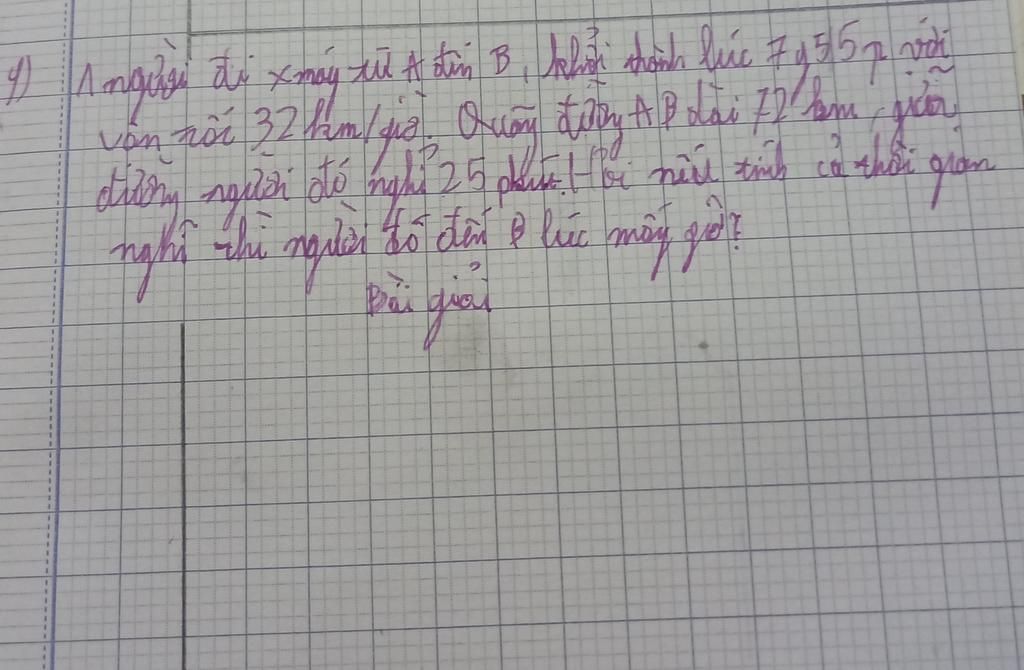 4) 1 người đi xmáy từ A đến B, khởi hành lúc 7g55p với
vận tốc 32 km/giờ. Quãng đường AB dài 72 km, giữa
đường người đó nghỉ 25 phút. Hỏi nếu tính cả thời gian
nghỉ thì người đó đến B lúc mấy giờ?
Bài giải